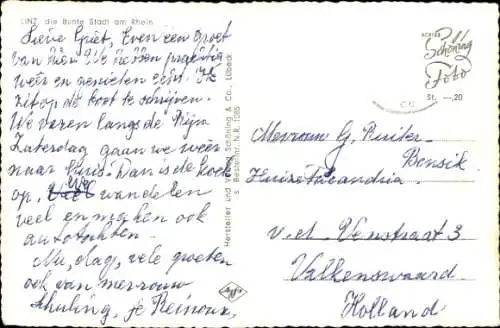 LINZ, die Bunte Stadt am Rhein
Lieve Griet, Even een groet
van hier. We hebben prachtig
weer en genieten echt. Ik
zit op de boot te schrijven.
We varen langs de Rijn
Zaterdag gaan we weer
naar huis. Dan is de koek
op. We wandelen
veel en maken ook
autotochten.
Nu, dag, vele groeten
ook van mevrouw
Schuling, je Reinoux.
Hersteller und Verlag Schöning & Co., Lübeck
Bestell-Nr. N.R. 1195
ECHTES
Schöning
Foto
St. —,20
Mevrouw G. Ruiter-
Bensik
Huize
v. d. Venstraat 3
Valkenswaard.
Holland
Agfa